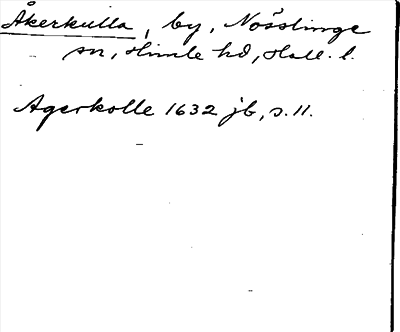 Åkerkulla, by, Nösslinge
sn, Himle hd, Hall. l.
Agerkolle 1632 jb, s. 11.